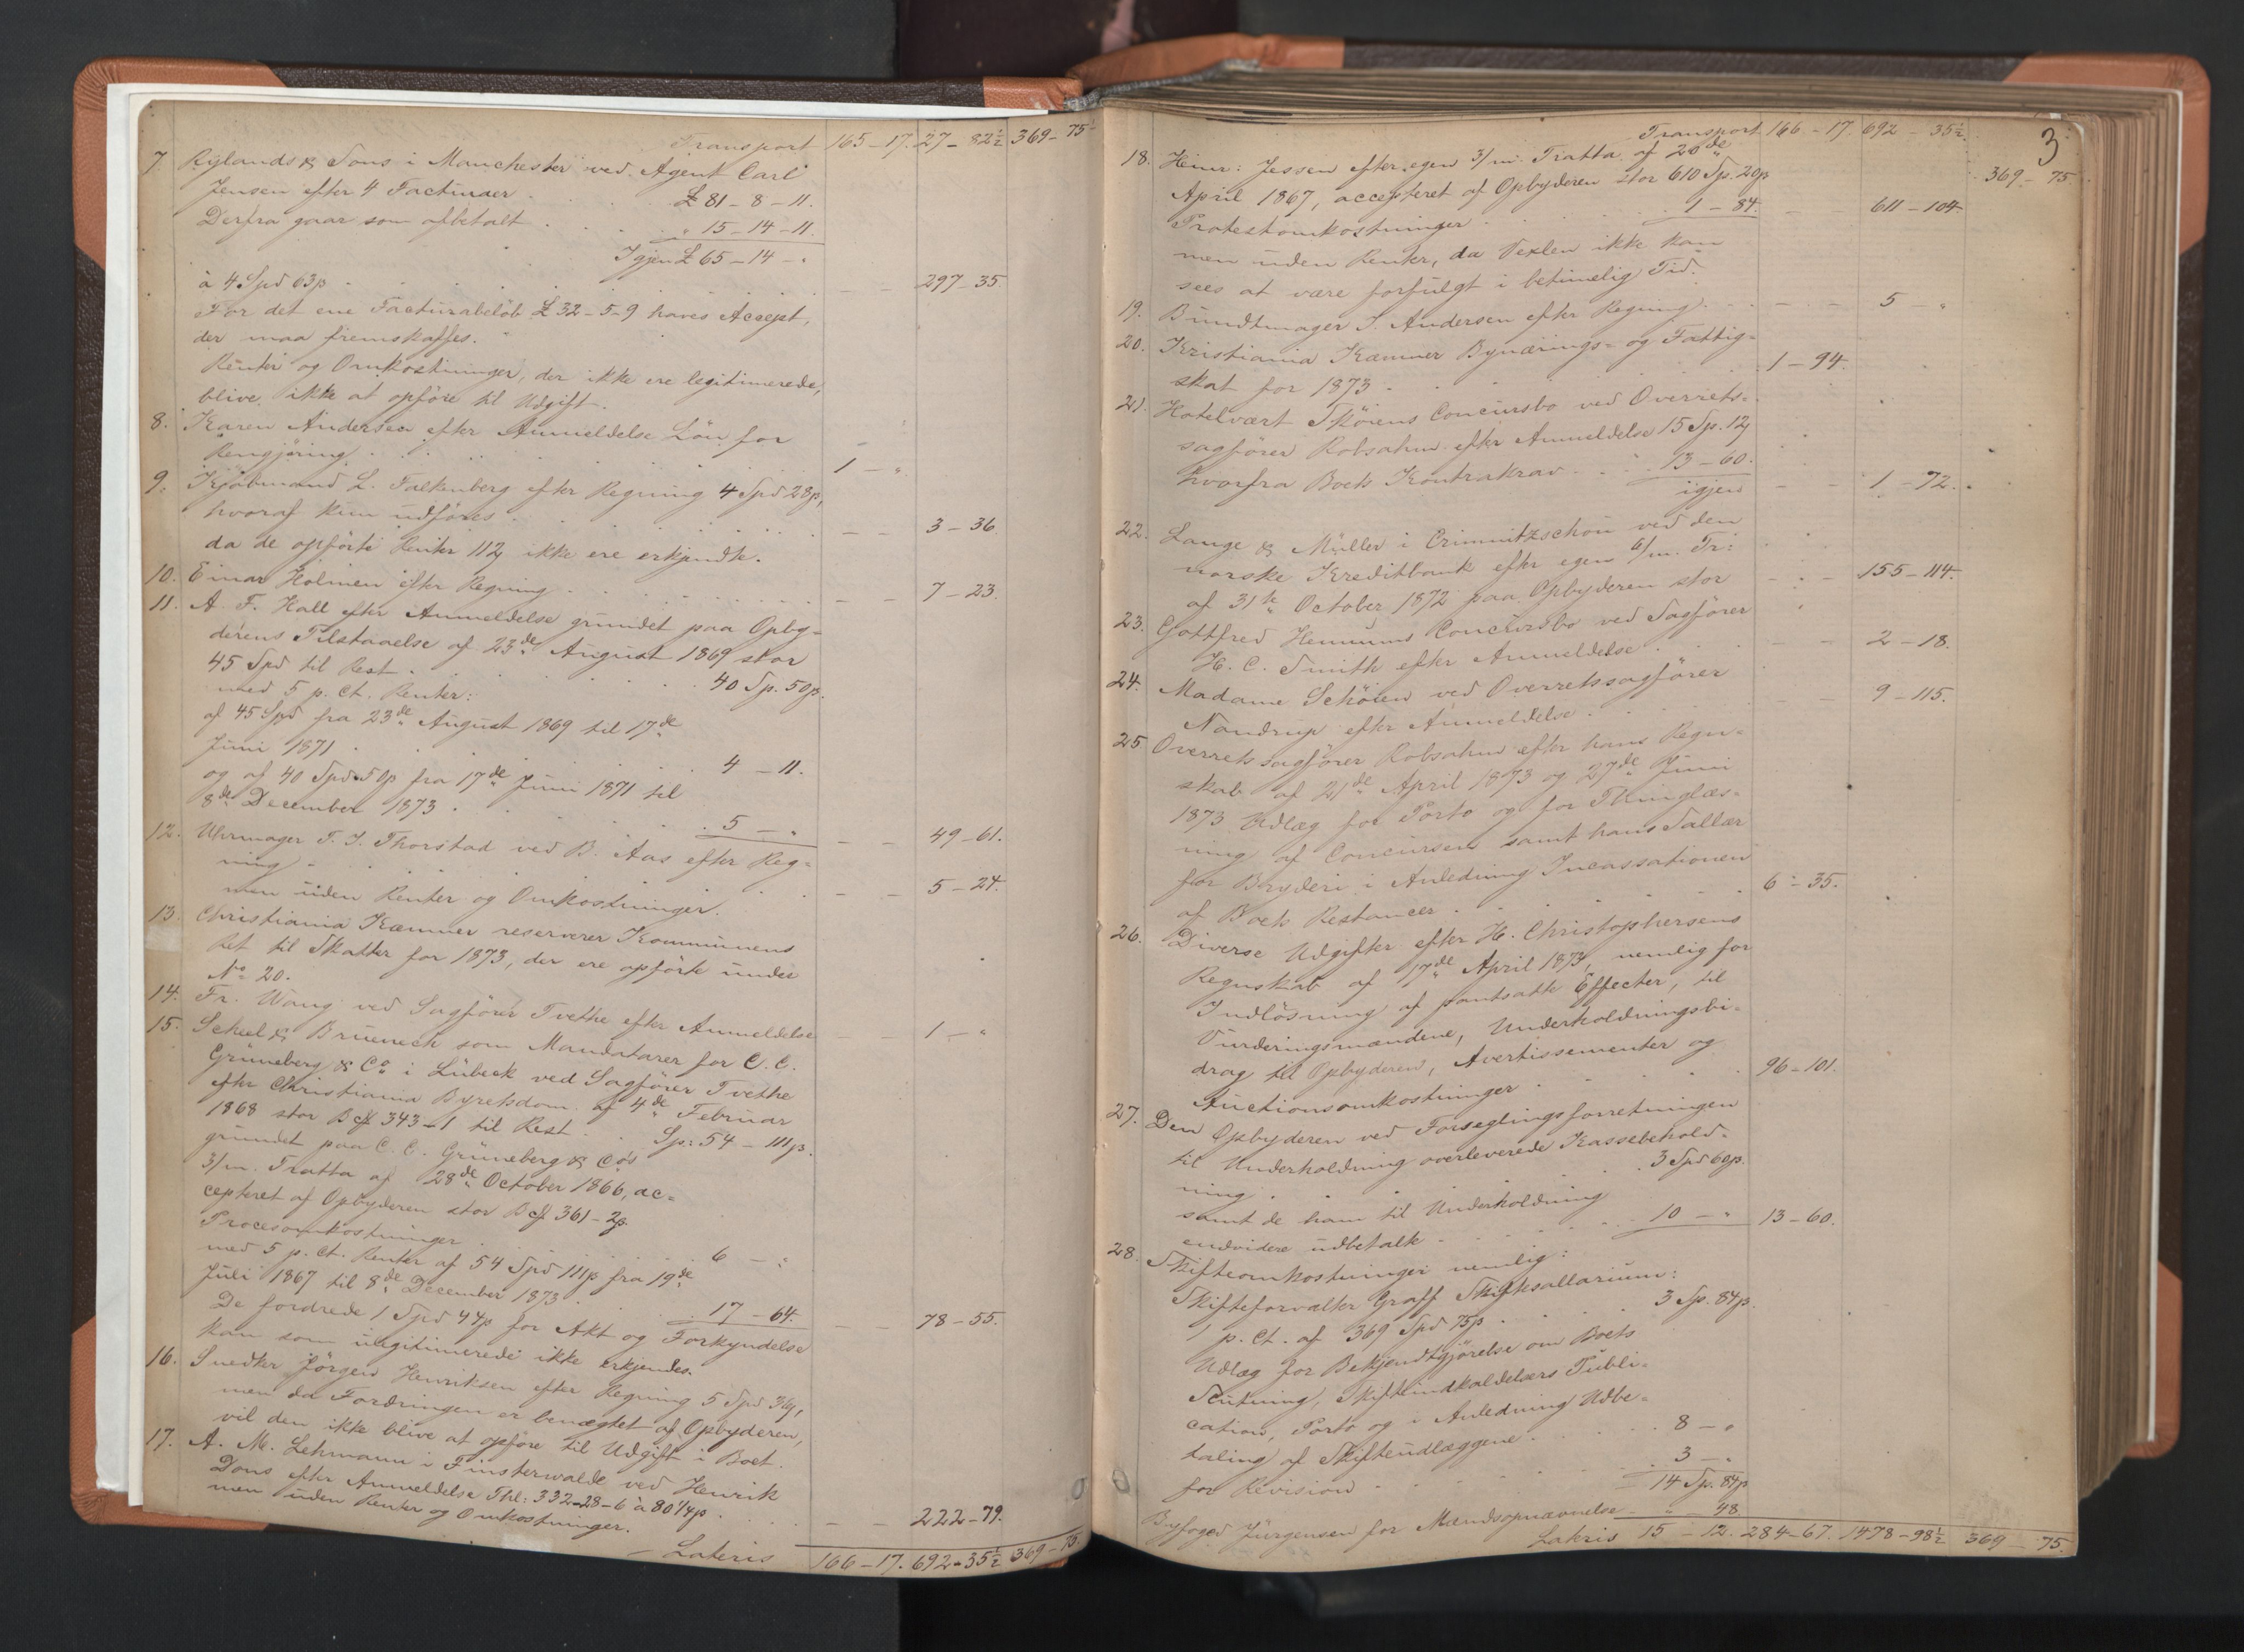 Transport 165 – 17. 27 – 82½ 369 – 75
7. Rylands & Sons i Manchester ved Agent Carl
Jensen efter 4 Facturaer . . £ 81 – 8 – 11.
Derfra gaar som afbetalt . . " 15 – 14 – 11.
Igjen £ 65 – 14 – "
à 4 Spd 63 β . . – – 297 – 35.
For det ene Facturabeløb £ 32 – 5 – 9 haves Accept,
der maa fremskaffes.
Renter og Omkostninger, der ikke ere legitimerede,
blive ikke at opføre til Udgift.
8. Karen Andersen efter Anmeldelse Løn for
Rengjøring . . . 1 – "
9. Kjøbmand L. Falkenberg efter Regning 4 Spd 28 β,
hvoraf kun udføres . . . – – 3 – 36.
da de opførte Renter 112 β ikke ere erkjendte.
10. Einar Holmen efter Regning . . . – – 7 – 23.
11. A. F. Hall efter Anmeldelse grundet paa Opby-
derens Tilstaaelse af 23de August 1869 stor
45 Spd til Rest . . . 40 Sp. 50 β.
med 5 p. Ct. Renter:
af 45 Spd fra 23de August 1869 til 17de
Juni 1871 . . . 4 – 11.
og af 40 Spd 50 β fra 17de Juni 1871 til
8de December 1873 . . . 5 – " – – 49 – 61.
12. Uhrmager T. J. Thorstad ved B. Aas efter Reg-
ning . . . – – 5 – 24.
men uden Renter og Omkostninger.
13. Christiania Kæmner reserverer Kommunens
Ret til Skatter for 1873, der ere opførte under
No 20.
14. Fr. Wang ved Sagfører Tvethe efter Anmeldelse – – 1 – "
15. Scheel & Bruenech som Mandatarer for C. C.
Grüneberg & Co i Lübeck ved Sagfører Tvethe
efter Christiania Byretsdom af 4de Februar
1868 stor Bc𝓂 343 – 1 til Rest . . Sp: 54 – 111 β.
grundet paa C. C. Grüneberg & Co's
3/m. Tratta af 28de October 1866, ac-
cepteret af Opbyderen stor Bc𝓂 361 – 2 β.
Procesomkostninger . . . 6 – "
med 5 p. Ct. Renter af 54 Spd 111 β fra 19de
Juli 1867 til 8de December 1873 . . . 17 – 64. – – 78 – 55.
De fordrede 1 Spd 44 β for Akt og Forkyndelse
kan som ulegitimerede ikke erkjendes.
16. Snedker Jørgen Henriksen efter Regning 5 Spd 36 β,
men da Fordringen er benægtet af Opbyderen,
vil den ikke blive at opføre til Udgift i Boet.
17. A. M. Lehmann i Finsterwalde ved Henrik
Dons efter Anmeldelse Thl: 332 – 28 – 6 à 80¼ β . – – 222 – 79.
men uden Renter og Omkostninger.
Lateris 166 – 17. 692 – 35½ 369 – 75.
3
Transport 166 – 17. 692 – 35½ 369 – 75.
18. Heinr: Jessen efter egen 3/m. Tratta af 20de
April 1867, accepteret af Opbyderen stor 610 Sp. 20 β
Protestomkostninger . . . 1 – 84. – – 611 – 104
men uden Renter, da Vexlen ikke kan
sees at være forfulgt i betimelig Tid.
19. Bundtmager J. Andersen efter Regning . . . – – 5 – "
20. Kristiania Kæmner Bynærings- og Fattig-
skat for 1873 . . . 1 – 94.
21. Hotelvært Skøiens Concursbo ved Overrets-
sagfører Robsahm efter Anmeldelse 15 Sp. 12 β
hvorfra Boets Kontrakrav . . 13 – 60.
igjen – – 1 – 72.
22. Lange & Müller i Crimmitzschau ved den
norske Kreditbank efter egen 6/m. Tr:
af 31te October 1872 paa Opbyderen stor – – 155 – 114.
23. Gottfred Hemmums Concursbo ved Sagfører
H. C. Smith efter Anmeldelse . . . – – 2 – 18.
24. Madame Schøien ved Overretssagfører
Nandrup efter Anmeldelse . . . – – 9 – 115.
25 Overretssagfører Robsahm efter hans Regn-
skab af 21de April 1873 og 27de Juni
1873 Udlæg for Porto og for Thinglæs-
ning af Concursen samt hans Sallær
for Bryderi i Anledning Incassationen
af Boets Restancer . . . 6 – 35.
26. Diverse Udgifter efter H. Christophersens
Regnskab af 17de April 1873, nemlig for
Indløsning af pantsatte Effecter, til
Vurderingsmændene, Underholdningsbi-
drag til Opbyderen, Avertissementer og
Auctionsomkostninger . . . 96 – 101.
27. Den Opbyderen ved Forseglingsforretningen
til Underholdning overleverede Kassebehold-
ning . . . 3 Spd 60 β.
samt de ham til Underholdning
endvidere udbetalte . . . 10 – " 13 – 60.
28. Skifteomkostninger nemlig:
Skifteforvalter Graff Skiftesallarium:
1 p. Ct. af 369 Spd 75 β . . . 3 Sp. 84 β.
Udlæg for Bekjendtgjørelse om Boets
Slutning, Skifteindkaldelsers Publi-
cation, Porto og i Anledning Udbe-
taling af Skifteudlæggene . . . 8 – "
for Revision . . . 3 – "
14 Sp. 84 β
Byfoged Jürgensen for Mændsopnævnelse – " 48.
Lateris 15 – 12. 284 – 67. 1478 – 98½ 369 – 75.